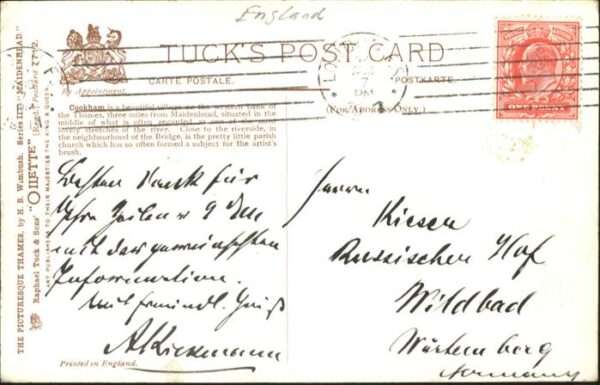 England
TUCK'S POST CARD
CARTE POSTALE.
POSTKARTE.
By Appointment.
(FOR ADDRESS ONLY.)
Cookham is a beautiful village on the western bank of
the Thames, three miles from Maidenhead, situated in the
middle of what is often
lovely stretches of the river. Close to the riverside, in
the neighbourhood of the Bridge, is the pretty little parish
church which has so often formed a subject for the artist's
brush.
Besten Dank für
Ihre Zeilen v 9 Dez
mit der gewünschten
Information.
Mit freundl. Gruß
A Kiekmann
Herrn
Kiesen
Russischer Hof
Wildbad
Würtemberg
Germany
Printed in England.
THE PICTURESQUE THAMES, by H. B. Wimbush. Series III. "MAIDENHEAD."
Raphael Tuck & Sons' "OILETTE" (Regd.) Postcard 7792.
ART PUBLISHERS TO THEIR MAJESTIES THE KING & QUEEN.
ONE PENNY